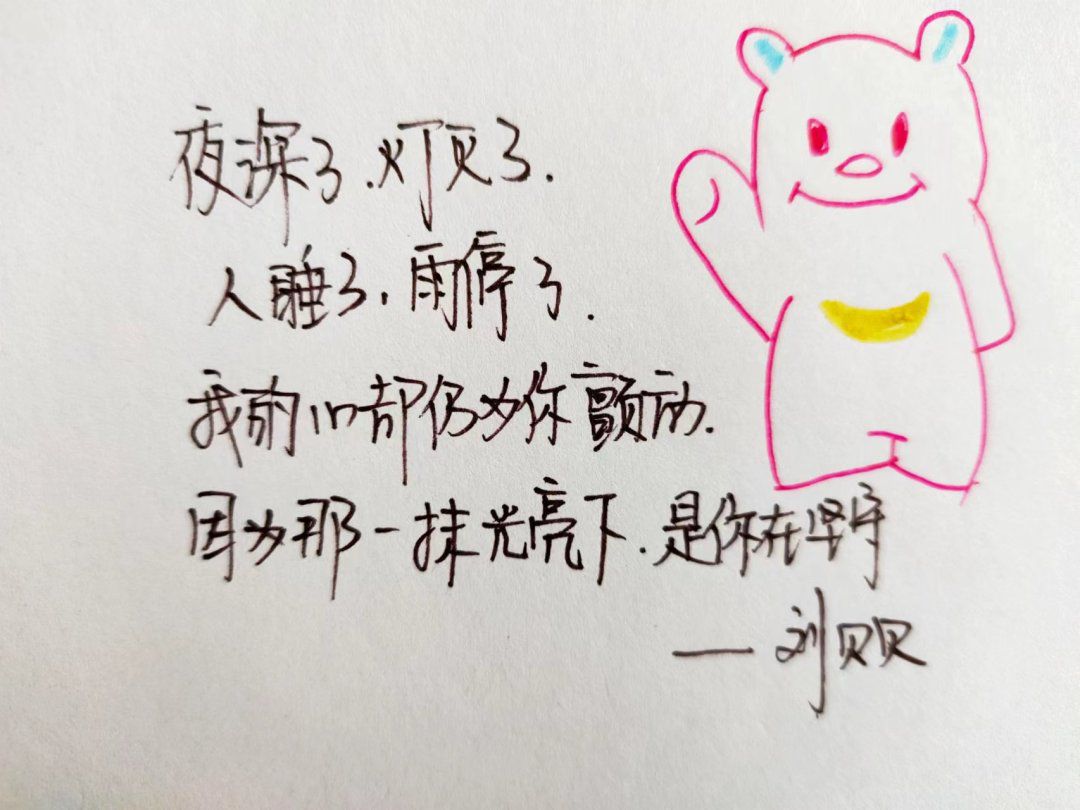 夜深了.灯灭了.
人睡了.雨停了.
我的心却仍为你颤动.
因为那一抹光亮下.是你在坚守
——刘贝贝